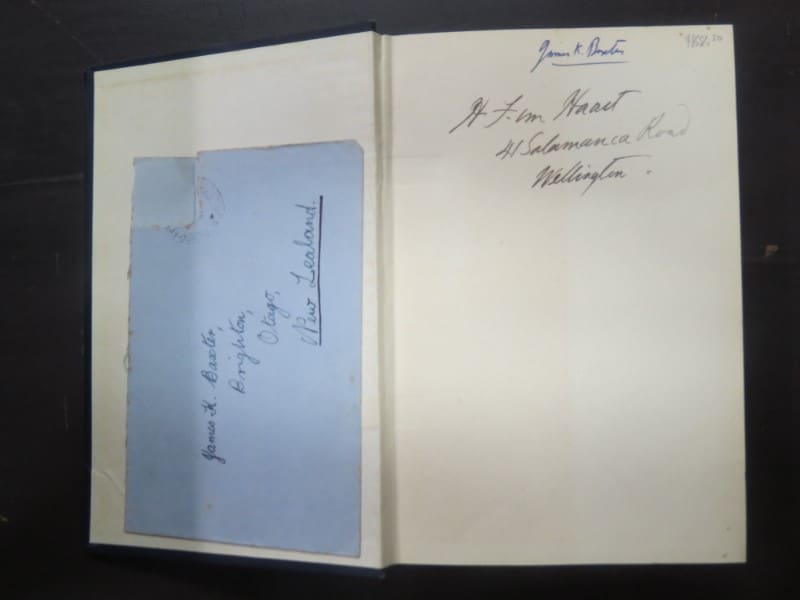 James K. Baxter,
Brighton,
Otago,
New Zealand.
James K. Baxter
H F. von Haast
41 Salamanca Road
Wellington.